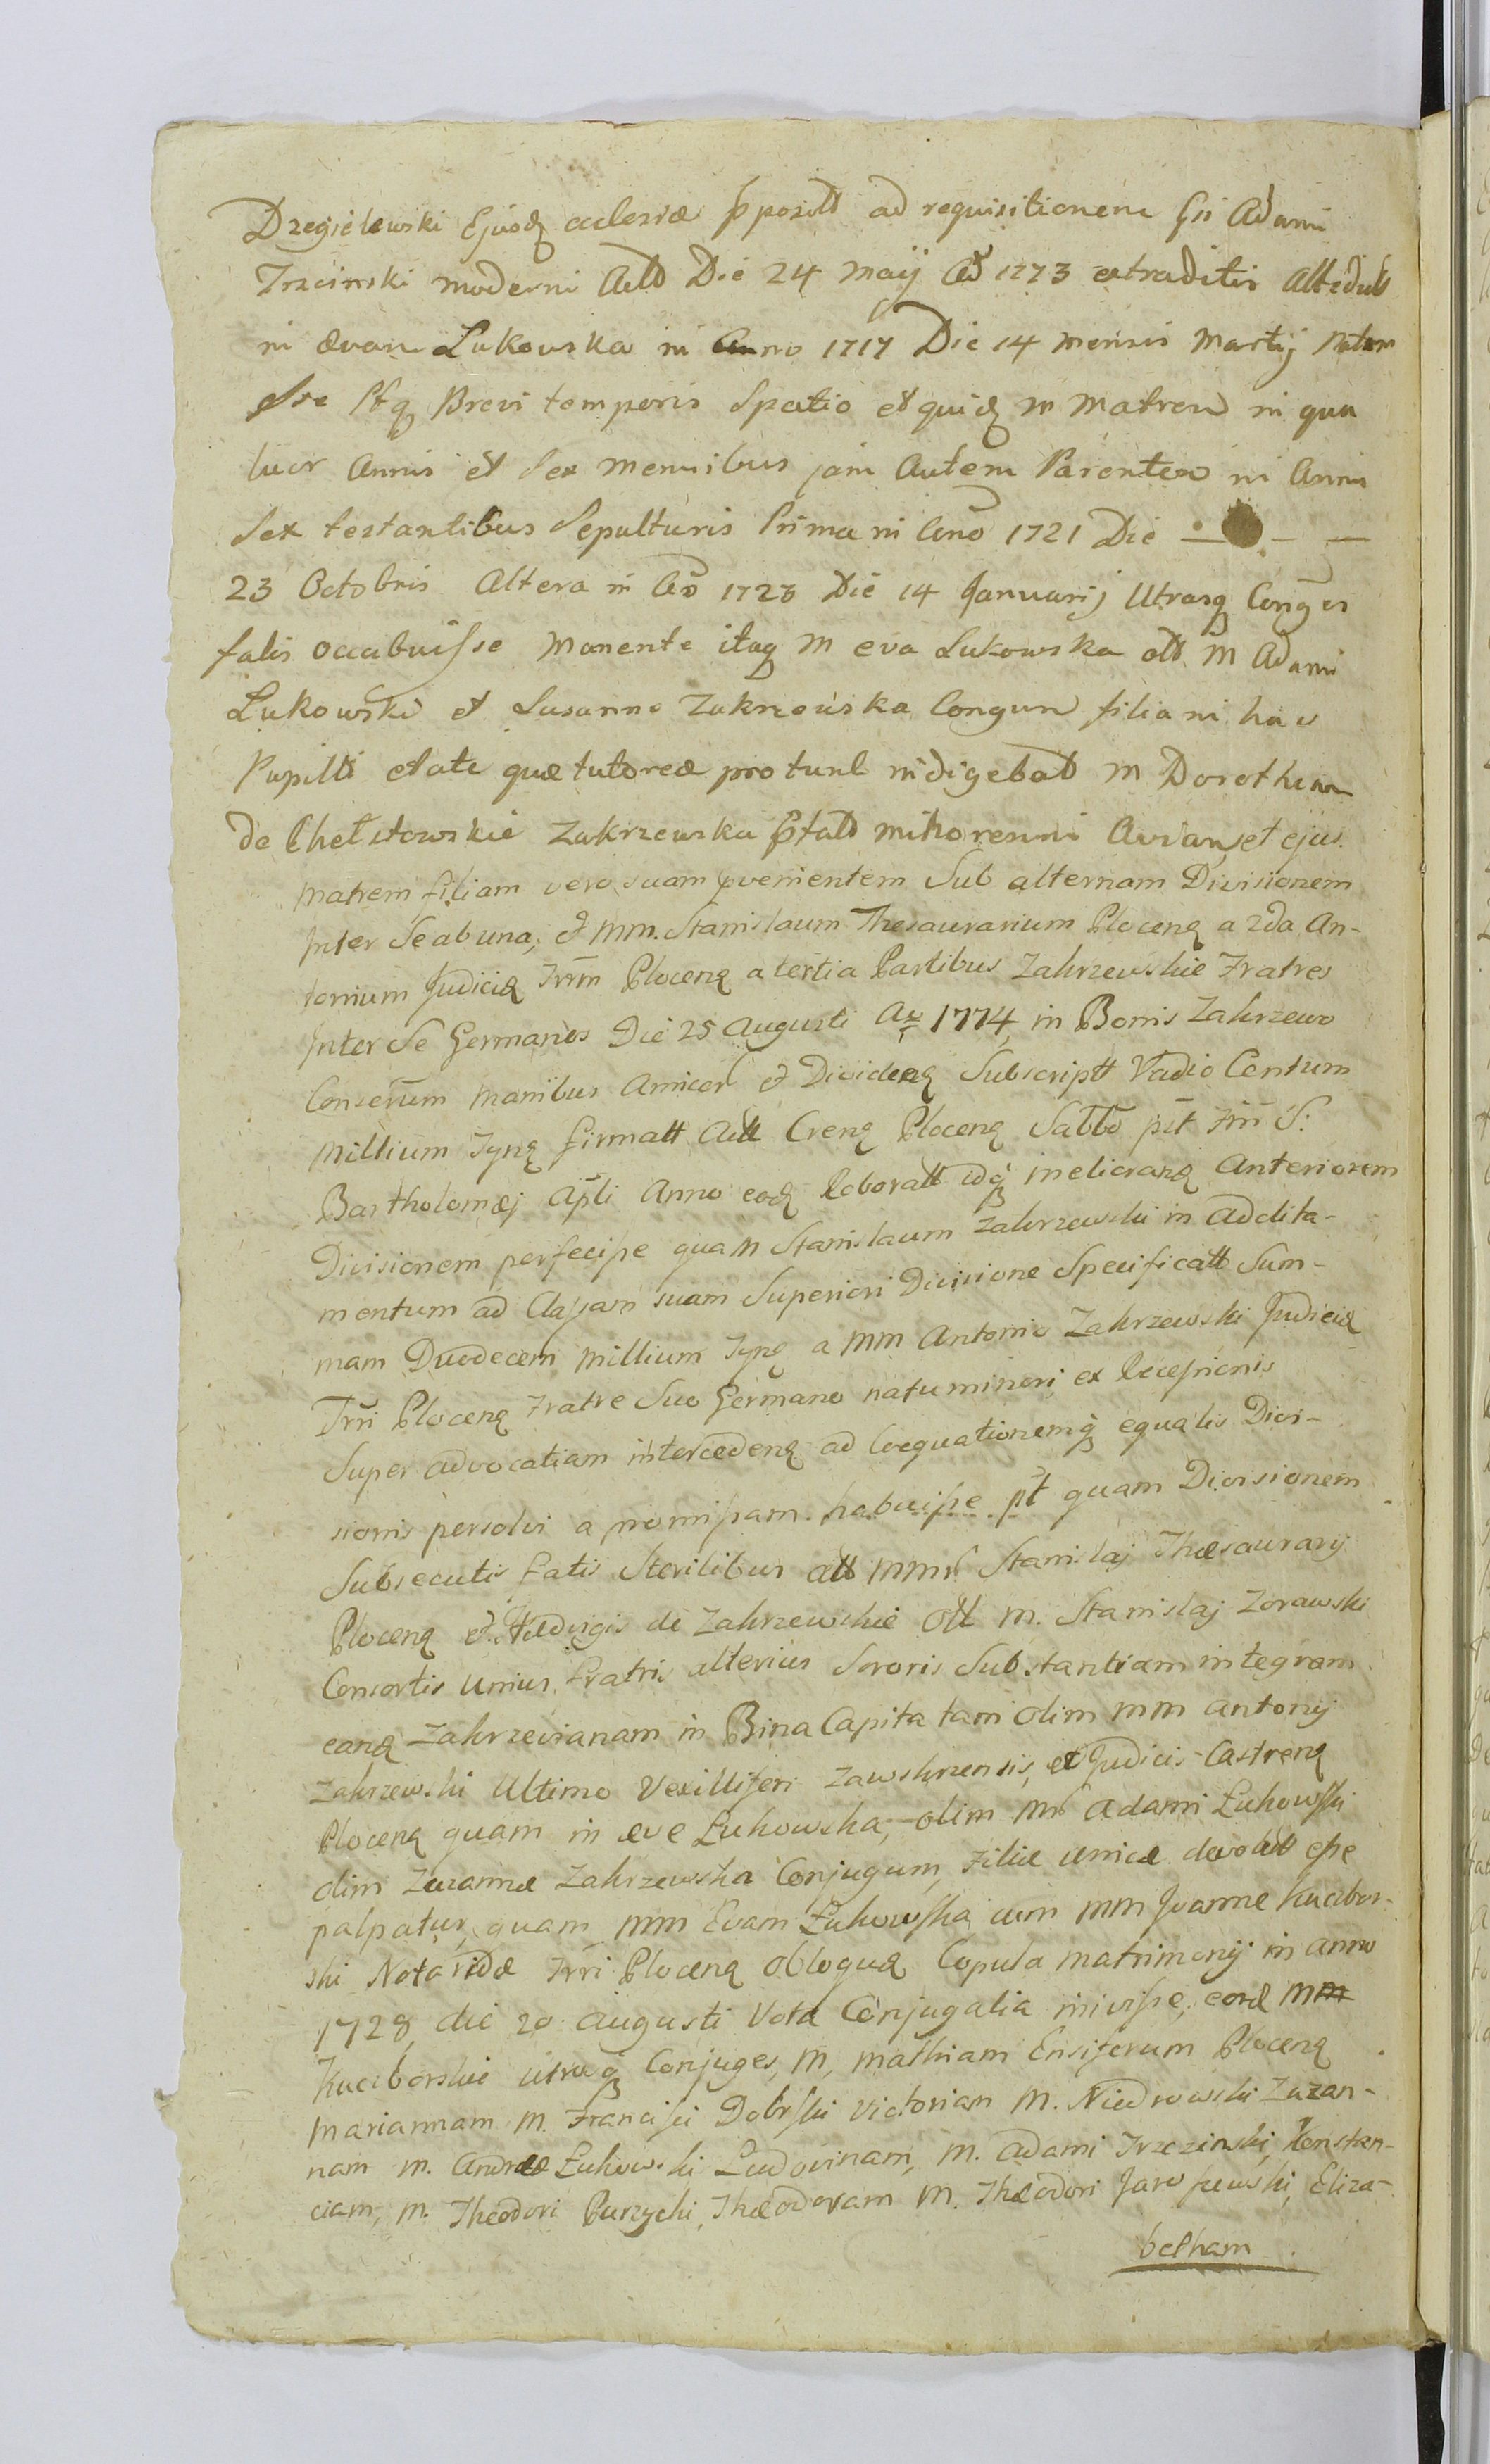 Dzegielewski Ejusdꝫ ecclesiæ pposittt ad requisitionem Gsi Adami
Trzcinski moderni Actt Die 24 Maij Aõ 1773 extraditis
in Evam Lukowska in Anno 1717 Die 14 mensis Martij Natam
esse Brevi temporis Spatio et quidꝫ M Matrem in qua
tuor Annis et Sex mensibus jam Autem Parentem in Annis
Sex testantibus Sepulturis Prima in Anõ 1721 Die — — —
23 Octobris Altera in Aõ 1723 Die 14 Januarij Utrasqꝫ Conges
fatis occubuisse Manente itaqꝫ M Eva Lukowska ott M Adami
Lukowski et Susanne Zakrzewska Congum filia in hac
Pupilli etate quæ tutorea pro tunc indigebat M Dorotheam
de Chełstowskie Zakrzewska Aviam et ejus
Matrem filiam vero suam pvenientem Sub alternam Divisionem
Inter Se ab una, et MM. Stanislaum Thesaurarium Plocenꝫ a 2da An-
tonium Judicē Trrm Plocenꝫ a tertia Partibus Zakrzewskie Fratres
Inter Se Germanos Die 25 Augusti Aõ 1774 in Bonis Zakrzewo
Conserum Manibus Amicor et Dividenꝫ Subscriptt Vadio Centum
Millium Fynꝫ firmatt Actt Crenꝫ Plocenꝫ Sabbõ pst Frii S:
Bartholomæj Apli Anno eodꝫ Roboratt idqꝫ melioranꝫ Anteriorem
Divisionem perfecisse qua M Stanislaum Zakrzewski in Addita-
mentum ad Classam suam Superiori Divisione Specificatt Sum-
mam Duodecem Millium Fynꝫ a MM Antonio Zakrzewski Judicē
Trri Plocenꝫ Fratre Suo Germano natu minori ex Recessionis
Super advocatiam intercedenꝫ ad Coequationemqꝫ equalis Divi-
sionis persolvi apromissam habuisse pst quam Divisionem
Subsecutis Fatis Sterilibus ott MM Stanislaj Thesaurarij
Plocenꝫ et Hedvigis de Zakrzewskie Ott M. Stanislaj Zorawski
Consortis Unius Fratris alterius Sororis Substantiam integram
eanꝫ Zakrzevianam in Bina Capita tam olim MM Antonij
Zakrzewski Ultimo Vexilliferi Zawskrzensis, et Judicis Castrenꝫ
Plocenꝫ quam in eve Łukowska, olim M Adami Łukowski
olim Zuzannæ Zakrzewska Conjugum, Filiæ unicæ devolutt esse
palpatur, quam MM Evam Łukowska cum MM Joanne Kucibor-
ski Notario Trri Plocenꝫ Copula matrimonij in anno
1728 die 20 Augusti Vota Conjugalia inivisse, eosdꝫ MM
Kuciborskie utrosqꝫ Conjuges, M, Mathiam Ensiferum Plocenꝫ
Mariannam M. Francisci Dobrski Victoriam M. Niedrowski Zuzan-
nam M. Andreæ Łukowski Ludovinam, M. Adami Trzczinski, Konstan-
ciam, M. Theodori Purzycki, Theodoram M. Theodori Eliza-
betham